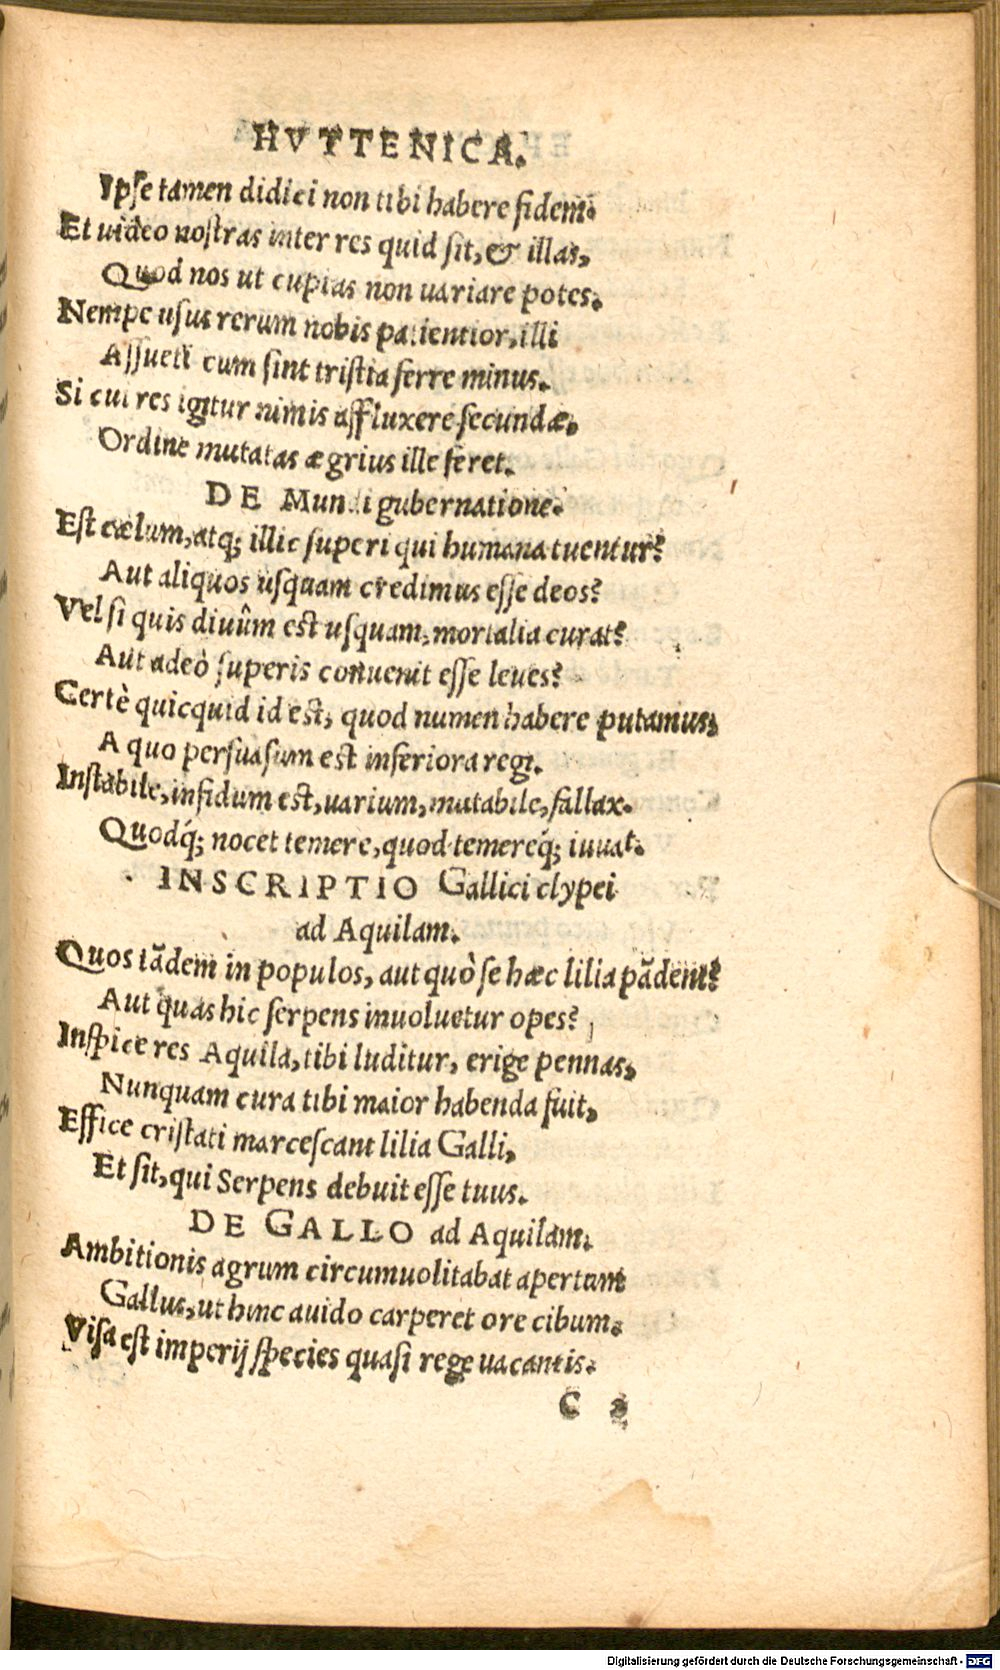 HVTTENICA.
Ipse tamen didici non tibi habere fidem.
Et uideo nostras inter res quid sit, & illas,
Quod nos ut cupias non uariare potes.
Nempe usus rerum nobis patientior, illi
Assueti cum sint tristia ferre minus.
Si cui res igitur nimis affluxere secundæ,
Ordine mutatas ægrius ille feret.
DE Mundi gubernatione.
Est cælum, atq; illic superi qui humana tuentur?
Aut aliquos usquam credimus esse deos?
Vel si quis diuûm est usquam, mortalia curat?
Aut adeò superis conuenit esse leues?
Certè quicquid id est, quod numen habere putamus,
A quo persuasum est inferiora regi.
Instabile, infidum est, uarium, mutabile, fallax.
Quodq́; nocet temere, quod temereq́; iuuat.
INSCRIPTIO Gallici clypei
ad Aquilam.
Quos tãdem in populos, aut quò se hæc lilia pãdent?
Aut quas hic serpens inuoluetur opes?
Inspice res Aquila, tibi luditur, erige pennas,
Nunquam cura tibi maior habenda fuit,
Effice cristati marcescant lilia Galli,
Et sit, qui Serpens debuit esse tuus.
DE GALLO ad Aquilam.
Ambitionis agrum circumuolitabat apertum
Gallus, ut hinc auido carperet ore cibum.
Visa est imperij species quasi rege uacantis.
C 2
Digitalisierung gefördert durch die Deutsche Forschungsgemeinschaft - DFG